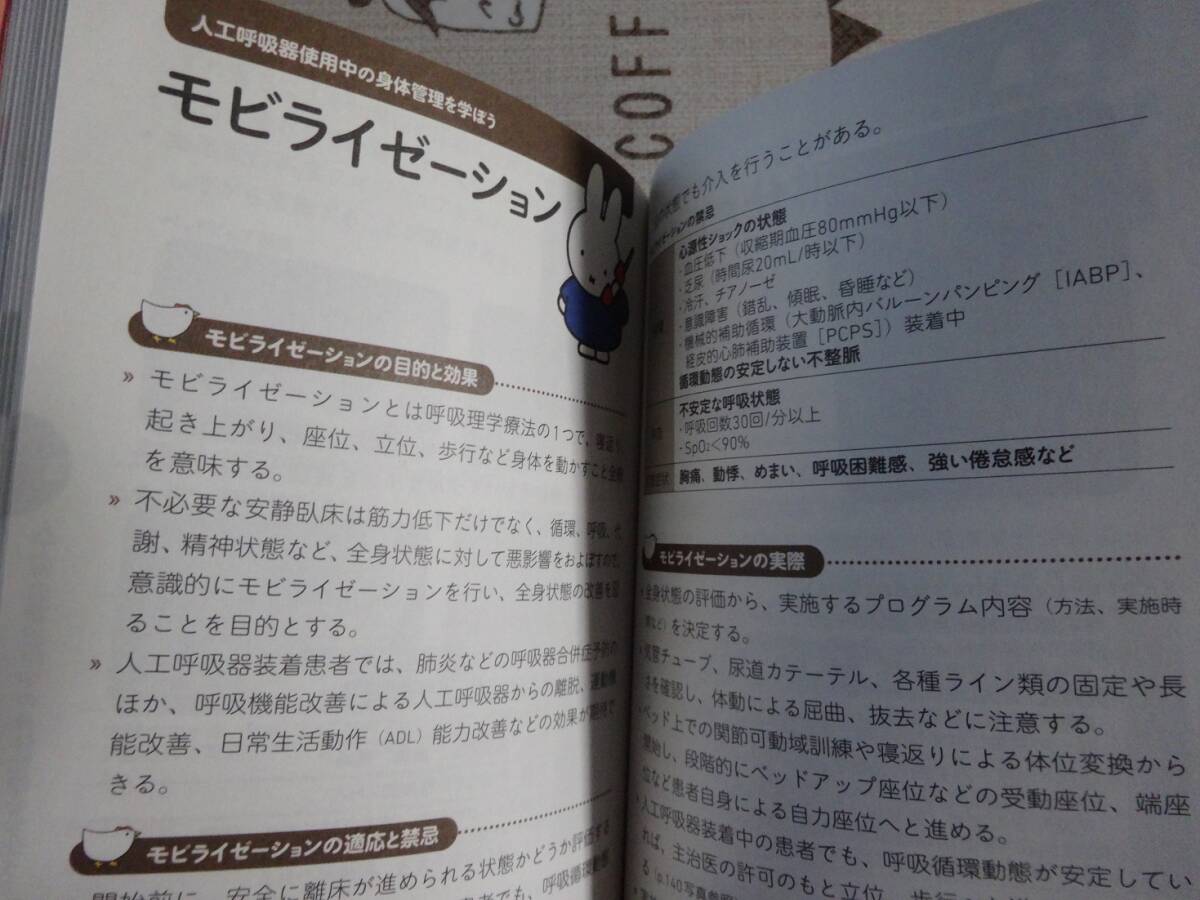 人工呼吸器使用中の身体管理を学ぼう
モビライゼーション
モビライゼーションの目的と効果
» モビライゼーションとは呼吸理学療法の1つで、寝返り、
起き上がり、座位、立位、歩行など身体を動かすこと全般
を意味する。
» 不必要な安静臥床は筋力低下だけでなく、循環、呼吸、代
謝、精神状態など、全身状態に対して悪影響をおよぼすので、
意識的にモビライゼーションを行い、全身状態の改善を図
ることを目的とする。
» 人工呼吸器装着患者では、肺炎などの呼吸器合併症予防の
ほか、呼吸機能改善による人工呼吸器からの離脱、運動機
能改善、日常生活動作（ADL）能力改善などの効果が期待で
きる。
モビライゼーションの適応と禁忌
開始前に、安全に離床が進められる状態かどうか評価する
患者でも、呼吸循環動態
COFF
状態でも介入を行うことがある。
イゼーションの禁忌
心源性ショックの状態
・血圧低下（収縮期血圧80mmHg以下）
・乏尿（時間尿20mL/時以下）
・冷汗、チアノーゼ
・意識障害（錯乱、傾眠、昏睡など）
・機械的補助循環（大動脈内バルーンパンピング［IABP］、
経皮的心肺補助装置［PCPS］）装着中
循環動態の安定しない不整脈
不安定な呼吸状態
・呼吸回数30回/分以上
・SpO₂＜90%
症状 胸痛、動悸、めまい、呼吸困難感、強い倦怠感など
モビライゼーションの実際
全身状態の評価から、実施するプログラム内容（方法、実施時
など）を決定する。
チューブ、尿道カテーテル、各種ライン類の固定や長
さを確認し、体動による屈曲、抜去などに注意する。
ベッド上での関節可動域訓練や寝返りによる体位変換から
開始し、段階的にベッドアップ座位などの受動座位、端座
位など患者自身による自力座位へと進める。
人工呼吸器装着中の患者でも、呼吸循環動態が安定してい
れば、主治医の許可のもと立位、歩行
る（p.140写真参照